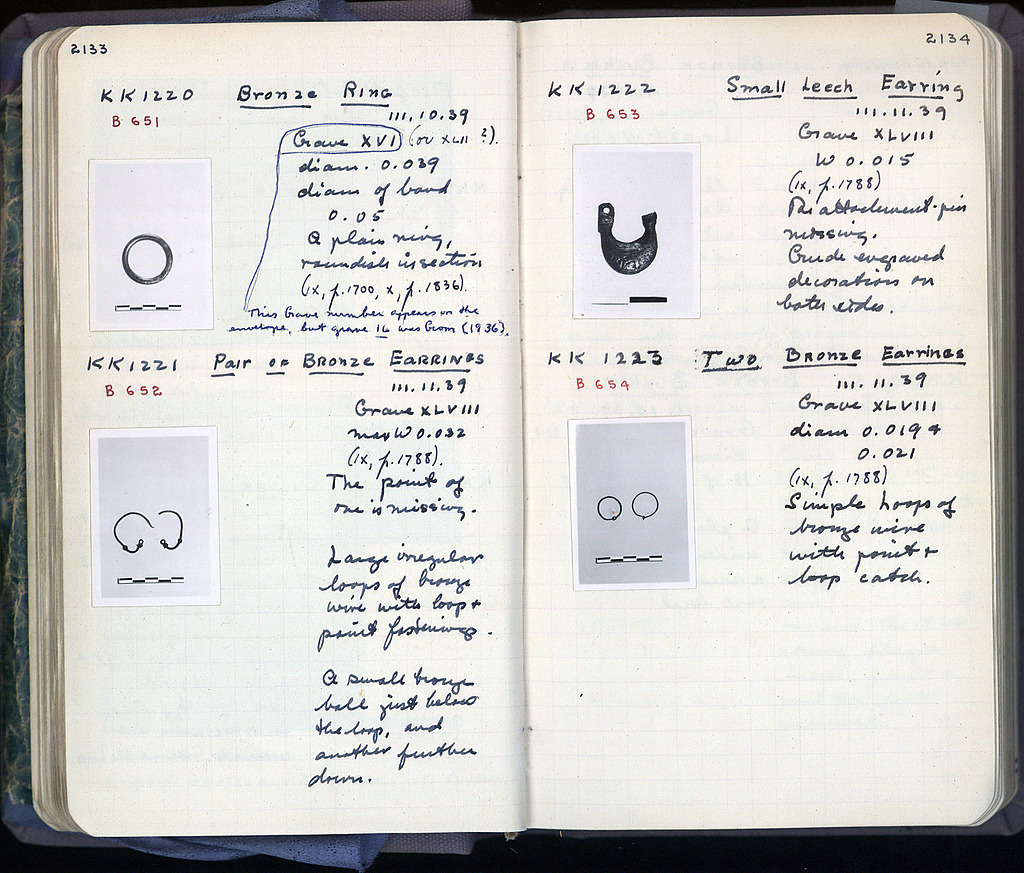 2133
KK1220 Bronze Ring
B 651
III.10.39
Grave XVI (or XLII ?).
diam. 0.039
diam of band
0.05
A plain ring,
roundish in section
(IX, p.1700, X, p.1836).
This Grave number appears on the
envelope, but grave 16 was from (1936).
KK1221 Pair of Bronze Earrings
B 652
III.11.39
Grave XLVIII
max W 0.032
(IX, p.1788).
The point of
one is missing.
Large irregular
loops of bronze
wire with loop +
point fastenings.
A small bronze
ball just below
the loop, and
another further
down.
2134
KK1222 Small Leech Earring
B 653
III.11.39
Grave XLVIII
W 0.015
(IX, p.1788)
The attachment-pin
missing.
Crude engraved
decorations on
both sides.
KK 1223 Two Bronze Earrings
B 654
III.11.39
Grave XLVIII
diam 0.019 +
0.021
(IX, p.1788)
Simple hoops of
bronze wire
with point +
loop catch.